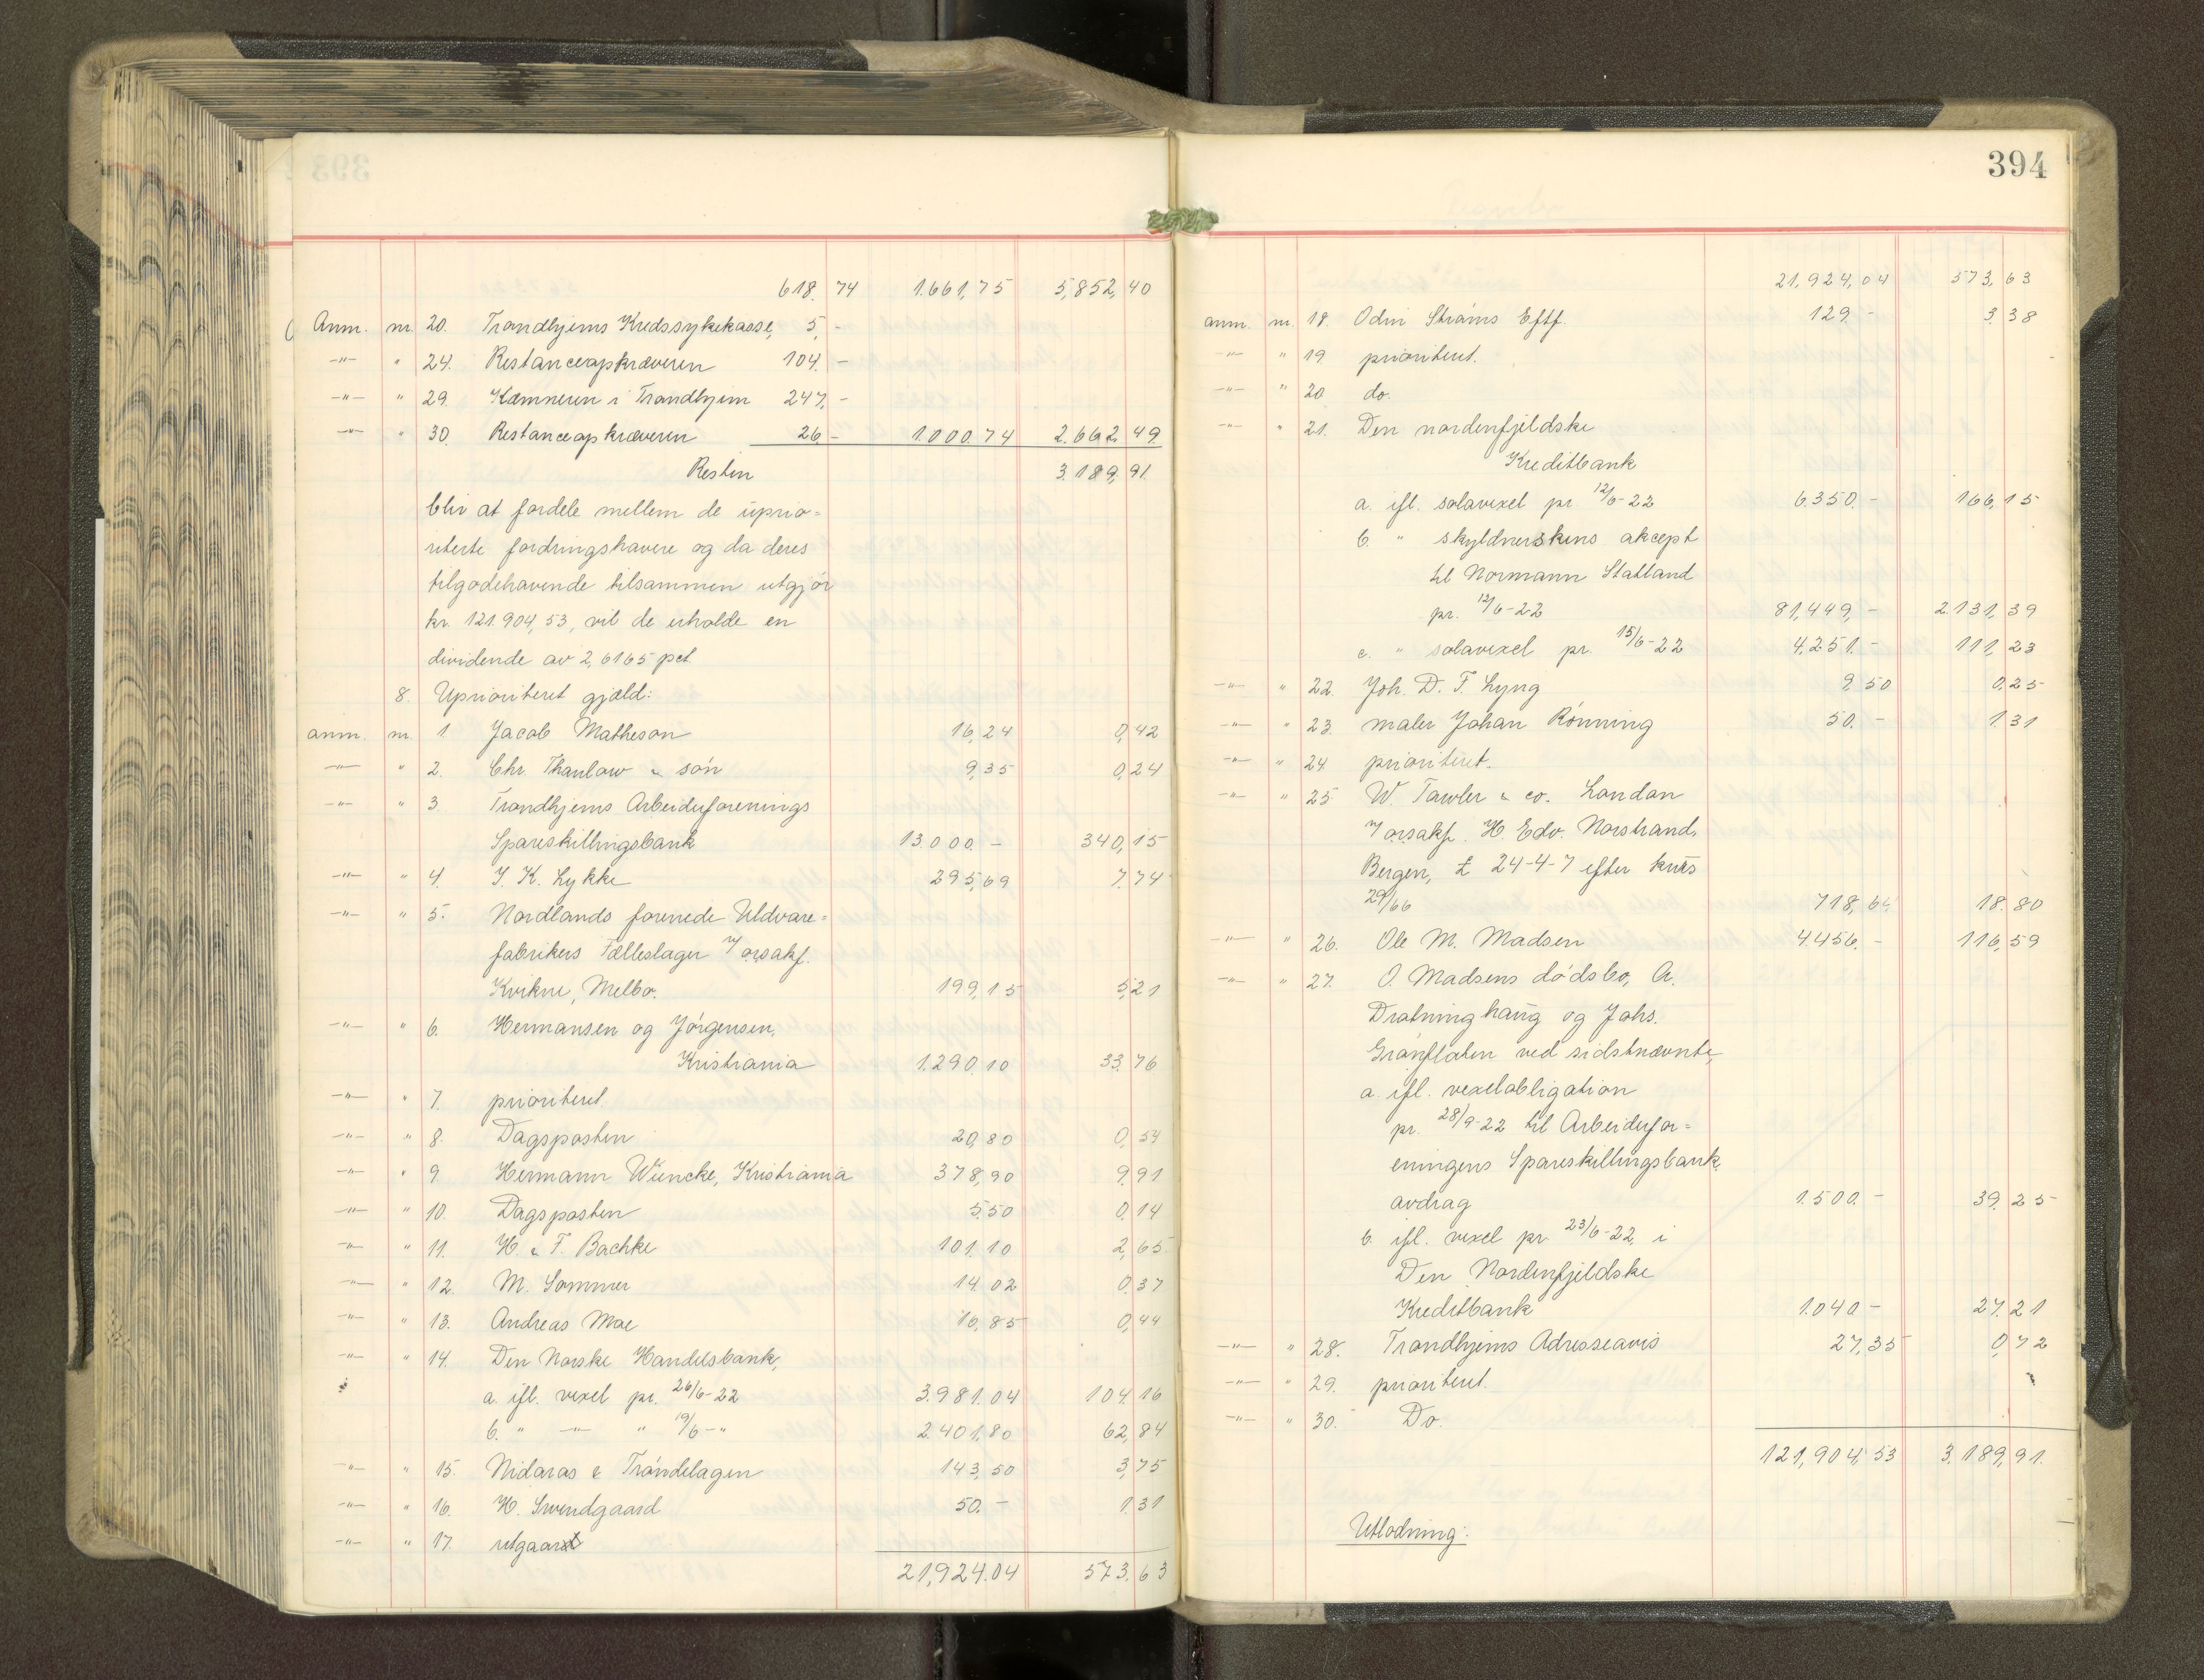 618. 74 1.661,75 5,852,40
Anm. nr. 20. Trondhjems Kredssykekasse, 5,-
-"- " 24. Restanceopkræveren 104.-
-"- " 29. Kæmneren i Trondhjem 247,-
-"- " 30. Restanceopkræveren 26.- 1.000.74 2.662,49.
Resten 3.189,91.
blir at fordele mellem de uprio=
riterte fordringshavere og da deres
tilgodehavende tilsammen utgjør
kr. 121.904,53, vil de erholde en
dividende av 2,6165 pct.
8. Uprioritert gjæld:
anm. nr. 1. Jacob Matheson 16,24 0,42
-"- " 2. Chr. Thaulow & søn 9,35 0,24
-"- " 3. Trondhjems Arbeiderforenings
Spareskillingsbank 13.000.- 340,15
-"- " 4. I. K. Lykke 295,69 7.74
-"- " 5. Nordlands forenede Uldvare=
fabrikers Fælleslager v/ orsakf.
Kvikne, Melbo. 199,15 5,21
-"- " 6. Hermansen og Jørgensen,
Kristiania 1.290.10 33.76
-"- " 7. prioritert.
-"- " 8. Dagsposten 20,80 0,54
-"- " 9. Hermann Wüncke, Kristiania 378,90 9.91
-"- " 10. Dagsposten 5.50 0.14
-"- " 11. H. & F. Bachke 101.10 2,65
-"- " 12. M. Sommer 14.02 0.37
-"- " 13. Andreas Moe 16,85 0,44
-"- " 14. Den Norske Handelsbank,
a. ifl. vexel pr. 26/6-22 3.981.04 104.16
b. " -"- " 19/6-" 2.401,80 62,84
-"- " 15. Nidaros & Trøndelagen 143,50 3,75
-"- " 16. H. Svendgaard 50.- 1.31
-"- " 17. utgaar
21,924.04 573.63
394
21,924,04 573,63
anm. nr. 18. Odin Strøms Eftf. 129.- 3.38
-"- " 19 prioritert.
-"- " 20 do.
-"- " 21. Den nordenfjeldske
Kreditbank
a. ifl. solavexel pr 12/6-22 6.350.- 166,15
b. " skyldnerskens akcept
til Normann Statland
pr. 12/6-22 81,449,- 2.131,39
c. " solavexel pr. 15/6-22 4,251.- 111,23
-"- " 22. Joh. D. F. Lyng 9,50 0,25
-"- " 23. maler Johan Rønning 50.- 1.31
-"- " 24. prioritert.
-"- " 25. W. Fowler & co. London
v/ orsakf. H. Edv. Norstrand,
Bergen, £ 24-4-7 efter kurs
29/66 718,64 18.80
-"- " 26. Ole M. Madsen 4.456.- 116,59
-"- " 27. O. Madsens dødsbo, A.
Dratninghaug og Johs.
Grønflaten ved sidstnævnte,
a. ifl. vexelobligation
pr. 28/9-22 til Arbeiderfor=
eningens Spareskillingsbank,
avdrag 1.500.- 39.25
b. ifl. vexel pr. 23/6-22, i
Den Nordenfjeldske
Kreditbank 1.040- 27.21
-"- " 28. Trondhjems Adresseavis 27,35 0,72
-"- " 29. prioritert.
-"- " 30. Do.
121,904,53 3.189,91.
Utlodning: